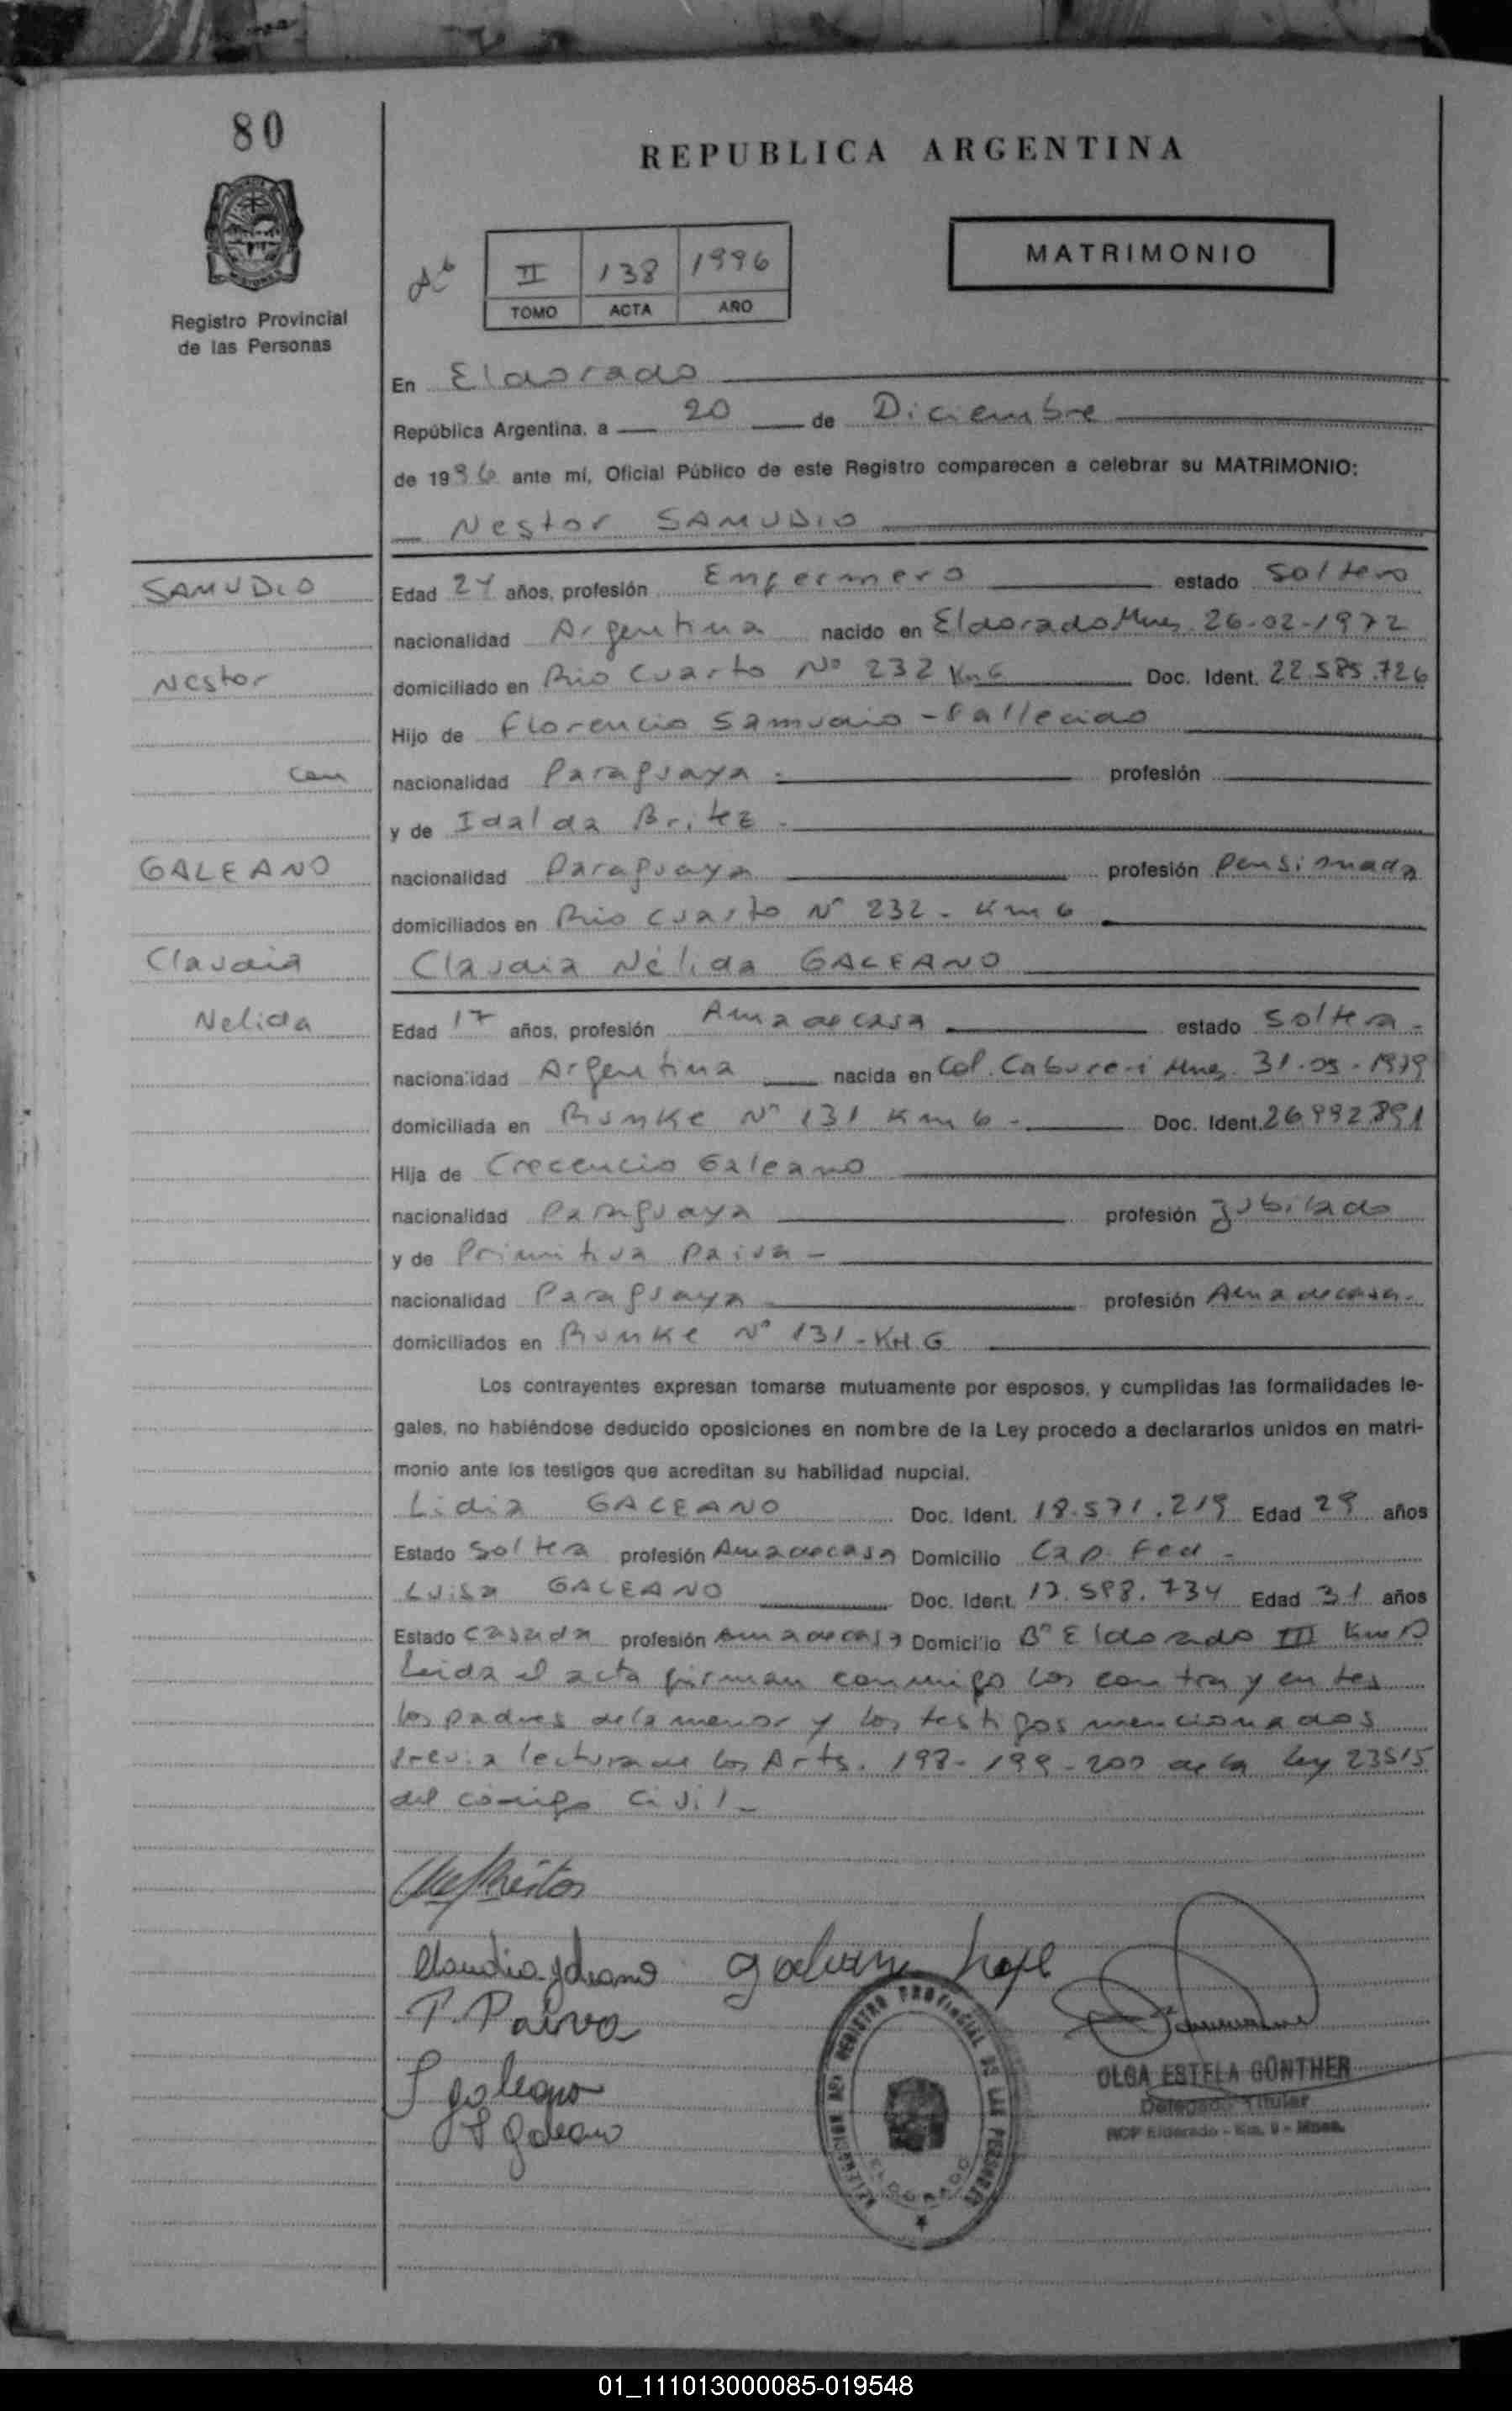 80
REPUBLICA ARGENTINA
MATRIMONIO
II 138 1996
TOMO ACTA AÑO
Registro Provincial
de las Personas
En Eldorado
República Argentina, a 20 de Diciembre
de 1996 ante mí, Oficial Público de este Registro comparecen a celebrar su MATRIMONIO:
Nestor SAMUDIO
SAMUDIO
Edad 24 años, profesión Enfermero estado Soltero
nacionalidad Argentina nacido en Eldorado Mnes. 26-02-1972
Nestor
domiciliado en Rio Cuarto Nº 232 Km 6 Doc. Ident. 22.585.726
Hijo de Florencio Samudio - Fallecido
con
nacionalidad Paraguaya. profesión
y de Idalda Britez.
GALEANO
nacionalidad Paraguaya profesión Pensionada
domiciliados en Rio Cuarto Nº 232 - Km 6
Claudia
Claudia Nélida GALEANO
Nelida
Edad 17 años, profesión Ama de casa estado Soltera -
nacionalidad Argentina nacida en Col. Cabure-i Mnes. 31-05-1979
domiciliada en Runke Nº 131 Km 6 - Doc. Ident. 26.992.891
Hija de Crecencio Galeano
nacionalidad Paraguaya profesión Jubilado
y de Primitiva Paiva -
nacionalidad Paraguaya profesión Ama de casa.
domiciliados en Runke Nº 131 - KM. 6
Los contrayentes expresan tomarse mutuamente por esposos, y cumplidas las formalidades le-
gales, no habiéndose deducido oposiciones en nombre de la Ley procedo a declararlos unidos en matri-
monio ante los testigos que acreditan su habilidad nupcial.
Lidia GALEANO Doc. Ident. 18.571.219 Edad 29 años
Estado Soltera profesión Ama de casa Domicilio Cap. Fed -
Luisa GALEANO Doc. Ident. 17.598.734 Edad 31 años
Estado Casada profesión Ama de casa Domicilio Bº Eldorado III Km
Leida el acta firman conmigo los contrayentes
los padres de la menor y los testigos mencionados
previa lectura de los Arts. 198-199-200 de la Ley 23515
del código Civil -
Claudia galeano
P. Paiva
galeano
Galeano
REGISTRO PROVINCIAL DE LAS PERSONAS
ELDORADO
OLGA ESTELA GÜNTHER
Delegado Titular
RCP Eldorado - Km. 9 - Mnes.
01_111013000085-019548